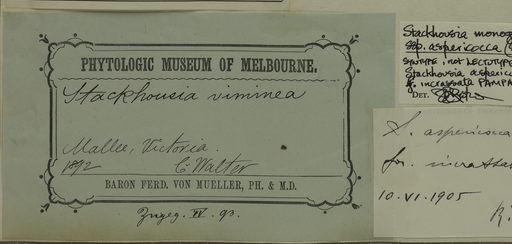 PHYTOLOGIC MUSEUM OF MELBOURNE.
Stackhousia viminea
Mallee, Victoria.
1892 C Walter
BARON FERD. VON MUELLER, PH. & M.D.
IV. 93.
Stackhousia monog
ssp. aspericocca (
SYNTYPE, NOT LECTOTYPE
Stackhousia asperico
f. incrassata PAMPA
DET.
S. aspericocca
for. incrassa
10-VI-1905
R.